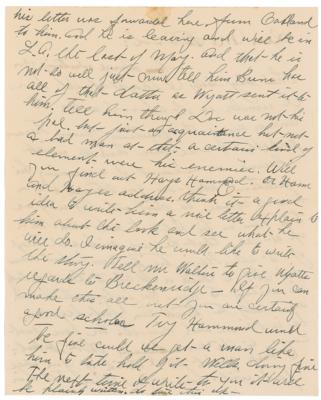 his letter was forwarded here from Oakland
to him. and he is leaving and will be in
L.A. the last of May. and that he is
not. so will just tell him Burns has
all of that data as Wyatt sent it to
him, tell him though Doc was not his
pal. but just an acquaintance but not
a bad man at that. a certain level of
element were his enemies. Will
you find out Hays Hammond. or Ham
address, think it a good
idea to write him a nice letter & explain to
him about the book and see what he
will do. I imagine he would like to write
the story. Tell Mr Walter to give Wyatts
regards to Breckenridge - If you can
make this all out you are certainly
a good scholar Try Hammond would
be fine could we get a man like
him to take hold of it. Well
The next time I write to you I will
be